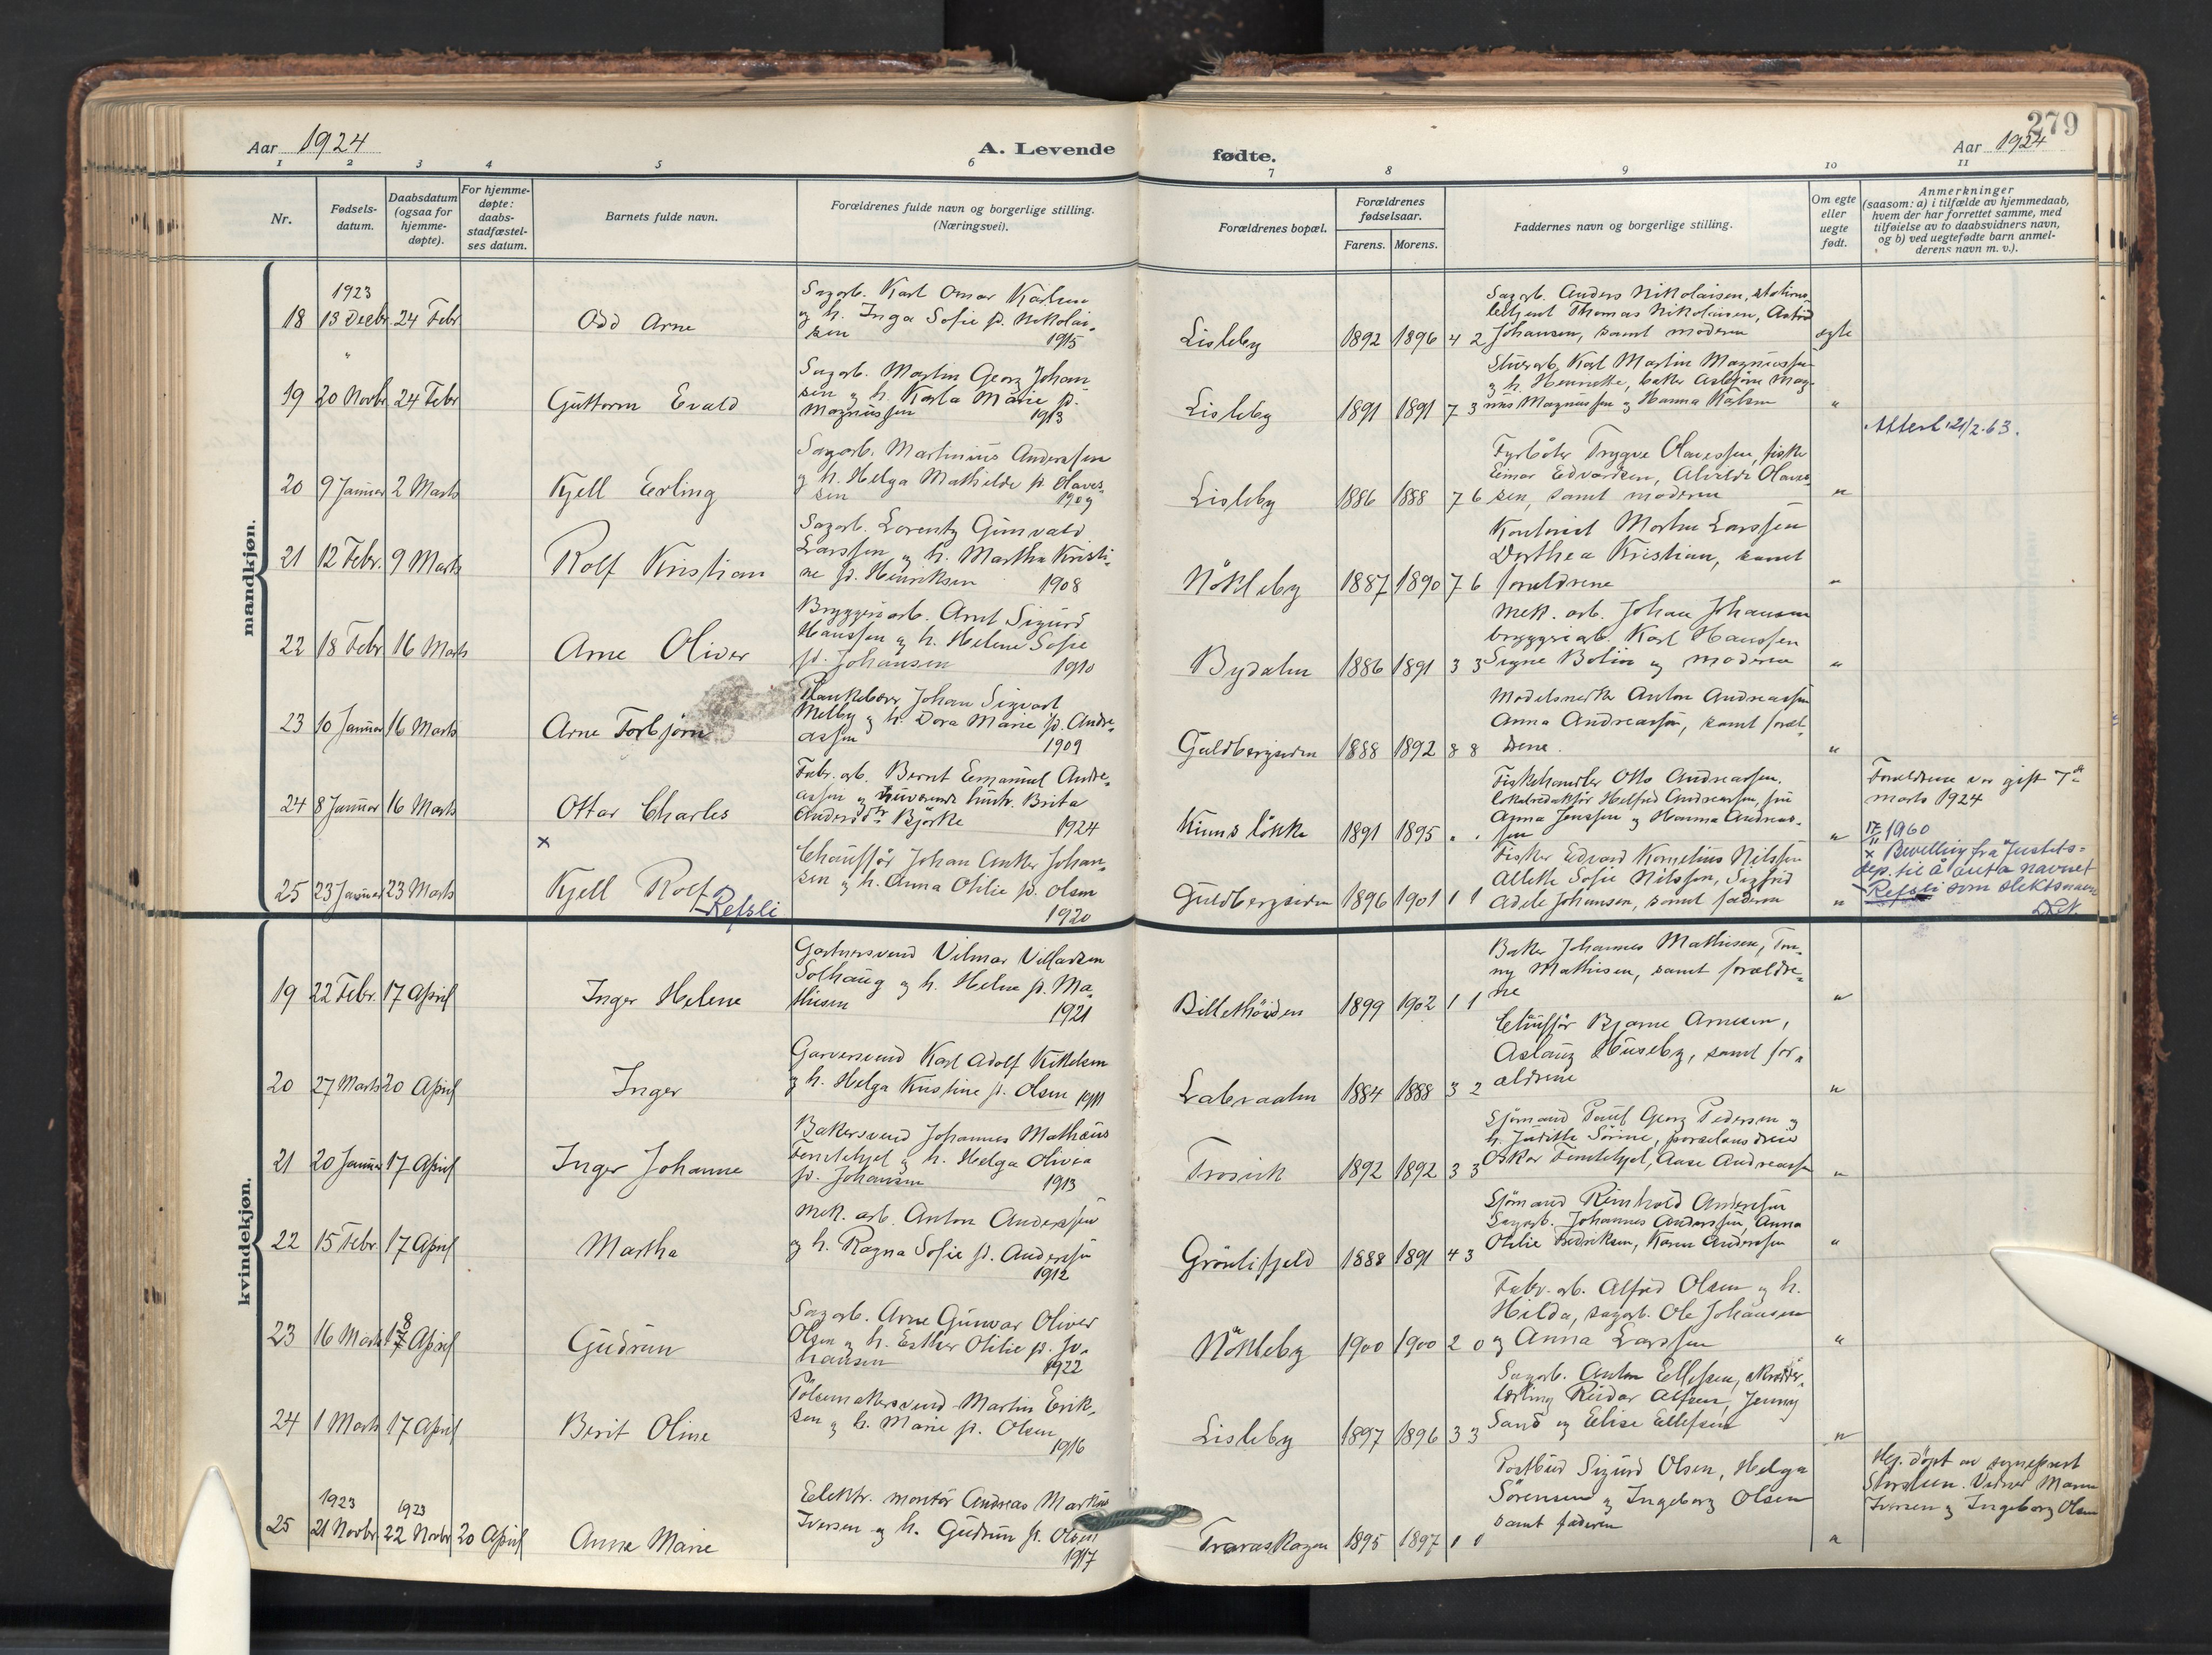 279
Aar 1924
A. Levende
fødte.
Aar 1924
1 2 3 4 5 6
7 8 9 10 11
Nr.
Fødsels-
datum.
Daabsdatum
(ogsaa for
hjemme-
døpte).
For hjemme-
døpte:
daabs-
stadfæstel-
ses datum.
Barnets fulde navn.
Forældrenes fulde navn og borgerlige stilling.
(Næringsvei).
Forældrenes bopæl.
Forældrenes
fødselsaar.
Farens. Morens.
Faddernes navn og borgerlige stilling.
Om egte
eller
uegte
født.
Anmerkninger
(saasom: a) i tilfælde av hjemmedaab,
hvem der har forrettet samme, med
tilføielse av to daabsvidners navn,
og b) ved uegtefødte barn anmel-
derens navn m. v.).
mandkjøn.
1923
18 13 Decbr 24 Febr
Odd Arne
Sagarb. Karl Omar Karlsen
og h. Inga Sofie f. Nikolai-
sen
1915
Lisleby 1892 1896 4 2
Sagarb. Anders Nikolaisen, stations-
betjent Thomas Nikolaisen, Astrid
Johansen, samt moderen
egte
"
19 20 Novbr 24 Febr
Guttorm Evald
Sagarb. Martin Georg Johan
sen og h. Karla Marie f.
Magnussen 1913
Lisleby 1891 1891 7 3
Karl Martin Magnussen
og h. Henriette, baker Asbjørn Mag-
nus Magnussen og Hanna Karlsen
"
Attest 21/2.63.
20 9 Januar 2 Marts
Kjell Erling
Sagarb. Martinius Anderssen
og h. Helga Mathilde f. Olaves-
sen 1909
Lisleby 1886 1888 7 6
Fyrbøter Trygve Olavessen, fisker
Einar Edvardsen, Alvilde Olaves-
sen, samt moderen
"
21 12 Febr. 9 Marts
Rolf Kristian
Sagarb. Lorentz Gunvald
Larssen og h. Martha Kristi-
ne f. Henriksen 1908
Nökleby 1887 1890 7 6
Kontorist Morten Larssen
Dorthea Kristian, samt
forældrene
"
22 18 Febr 16 Marts
Arne Oliver
Bryggeriarb. Arnt Sigurd
Hanssen og h. Helene Sofie
f. Johansen 1910
Bydalen 1886 1891 3 3
Mek. arb. Johan Johansen
bryggeriarb. Karl Hanssen
Signe Bolin og moderen
"
23 10 Januar 16 Marts
Arne Torbjørn
Plankebærer Johan Sigvart
Melby og h. Dora Marie f. Andre-
assen 1909
Guldbergsiden 1888 1892 8 8
Modelsnekker Anton Andreassen
Anna Andreassen, samt foræl-
drene.
"
24 8 Januar 16 Marts
Ottar Charles
Fabr. arb. Bernt Emanuel Andre-
assen og nuværende hustr. Brita
Andersdtr Bjørke 1924
Kiuns løkke 1891 1895
Fiskehandler Otto Andreassen,
lokalredaktør Helfred Andreassen, frü
Anna Jenssen og Hanna Andreas-
sen
"
Forældrene var gift 7de
marts 1924
×
25 23 Januar 23 Marts
Kjell Rolf Refsli
Chauffør Johan Anker Johan-
sen og h. Anna Otilie f. Olsen
1920
Guldbergsiden 1896 1901 1 1
Fisker Edvard Kornelius Nilssen
Allette Sofie Nilssen, Sigfrid
Adele Johansen, samt faderen
"
17/11 1960
× Bevilling fra Justits-
dep. til å anta navnet
Refsli som slektsnavn
kvindekjøn.
19 22 Febr. 17 April
Inger Helene
Gartnersvend Vilmar Villadsen
Solhaug og h. Helene f. Ma-
thisen 1921
Billethøiden 1899 1902 1 1
Baker Johannes Mathisen, Ton-
ny Mathisen, samt forældre-
ne
"
20 27 Marts 20 April
Inger
Garversvend Karl Adolf Kittelsen
og h. Helga Kristine f. Olsen 1911
Labraaten 1884 1888 3 2
Chauffør Bjarne Arnesen,
Aslaug Huseby, samt for-
ældrene
"
21 20 Januar 17 April
Inger Johanne
Bakersvend Johannes Mathæus
Femtehjel og h. Helga Olivia
f. Johansen 1913
Trosvik 1892 1892 3 3
Sjømand Paul Georg Pedersen og
h. Judithe Sørine, porselensdreier
Oskar Femtehjel, Aase Andreassen
"
22 15 Febr. 17 April
Martha
Mek. arb. Anton Anderssen
og h. Ragna Sofie f. Anderssen
1912
Grönlifjeld 1888 1891 4 3
Sjømand Reinhold Anderssen
Sagarb. Johannes Anderssen, Anna
Otilie Fredriksen, Karen Anderssen
"
23 16 Marts 18 April
Gudrun
Sagarb. Arne Gunvar Oliver
Olsen og h. Esther Otilie f. Jo-
hansen 1922
Nökleby 1900 1900 2 0
Fabr. arb. Alfred Olsen og h.
Hilda, sagarb. Ole Johansen
og Anna Larssen
"
24 1 Marts 17 April
Berit Oline
Pølsemakersvend Martin Erik-
sen og h. Marie f. Olsen
1916
Lisleby 1897 1896 3 3
Sagarb. Anton Ellefsen, skrædder-
lærling Reidar Alfsen, Jenny
Sand og Elise Ellefsen
"
1923 1923
25 21 Novbr 22 Novbr 20 April
Anne Marie
Elektr. montør Andreas Markus
Iversen og h. Gudrun f. Olsen
1917
Traraskogen 1895 1897 1 1
Postbud Sigurd Olsen, Helga
Sørensen og Ingeborg Olsen
samt faderen
"
Hj. døpt av sogneprest
Storsteen. Vidner Maren
Iversen og Ingeborg Olsen